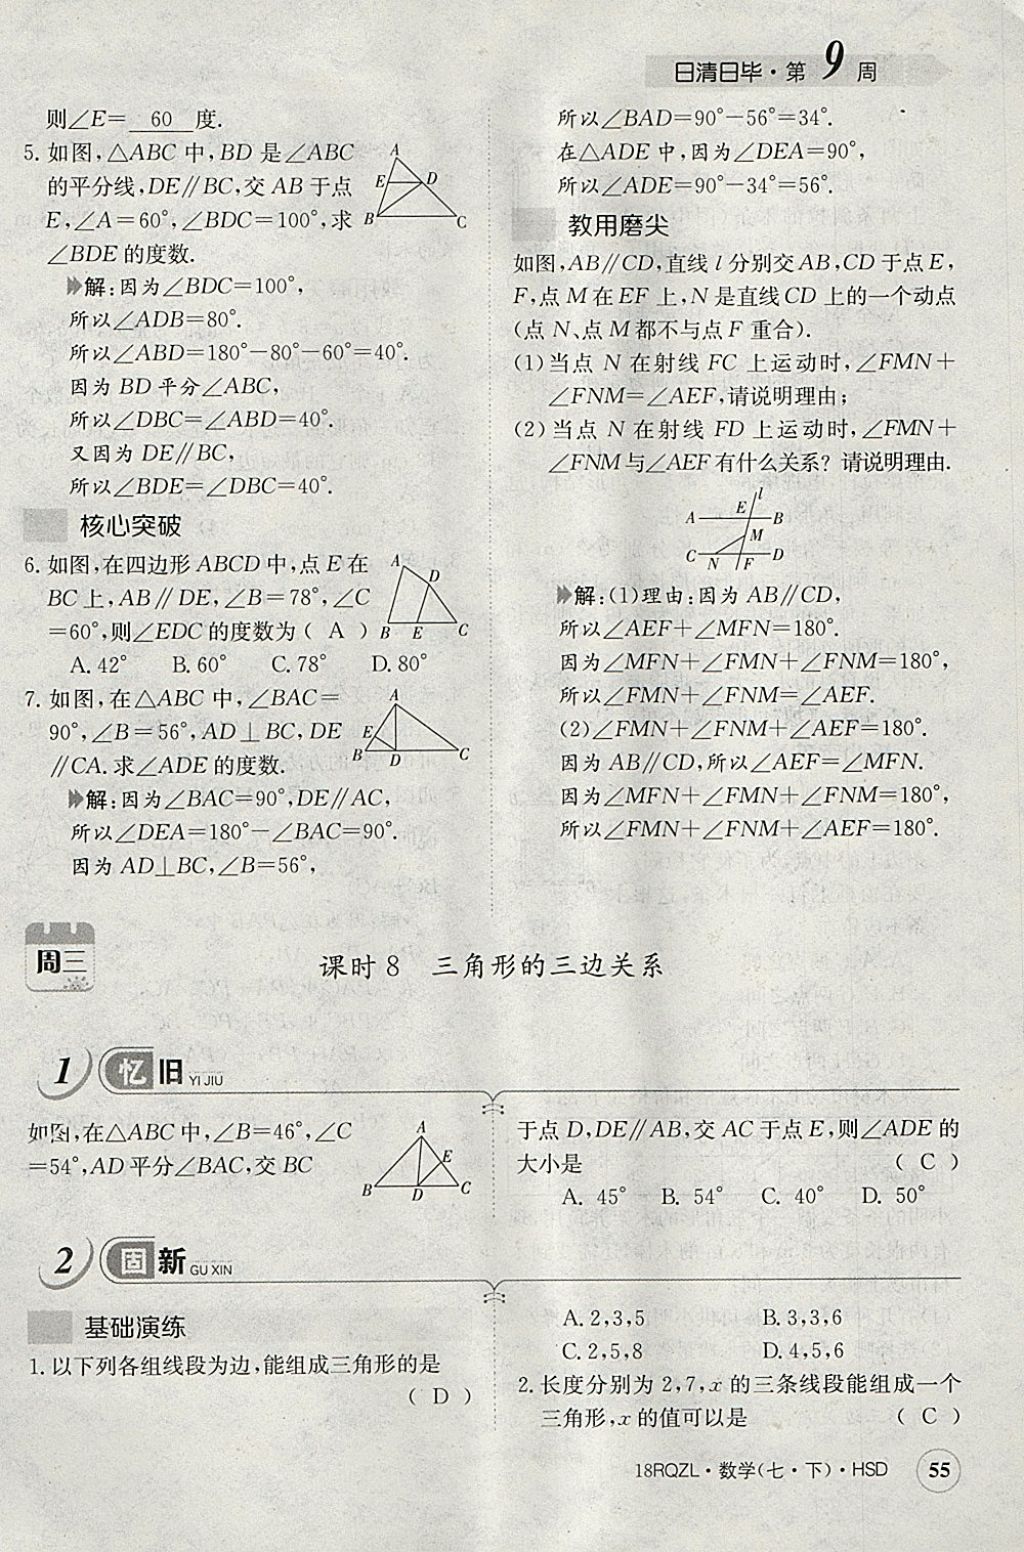 日清日毕·第9周
则∠E= 60 度.
5. 如图,△ABC 中,BD 是∠ABC
的平分线,DE∥BC,交 AB 于点
E,∠A=60°,∠BDC=100°,求
∠BDE 的度数.
A
E
D
B
C
解:因为∠BDC=100°,
所以∠ADB=80°.
所以∠ABD=180°-80°-60°=40°.
因为 BD 平分∠ABC,
所以∠DBC=∠ABD=40°.
又因为 DE∥BC,
所以∠BDE=∠DBC=40°.
核心突破
6. 如图,在四边形 ABCD 中,点 E 在
BC 上,AB∥DE,∠B=78°,∠C
=60°,则∠EDC 的度数为( A )
A. 42° B. 60° C. 78° D. 80°
A
D
B E C
7. 如图,在△ABC 中,∠BAC=
90°,∠B=56°,AD⊥BC,DE
∥CA.求∠ADE 的度数.
A
E
B D C
解:因为∠BAC=90°,DE∥AC,
所以∠DEA=180°-∠BAC=90°.
因为 AD⊥BC,∠B=56°,
所以∠BAD=90°-56°=34°.
在△ADE 中,因为∠DEA=90°,
所以∠ADE=90°-34°=56°.
教用磨尖
如图,AB∥CD,直线 l 分别交 AB,CD 于点 E,
F,点 M 在 EF 上,N 是直线 CD 上的一个动点
(点 N、点 M 都不与点 F 重合).
(1)当点 N 在射线 FC 上运动时,∠FMN+
∠FNM=∠AEF,请说明理由;
(2)当点 N 在射线 FD 上运动时,∠FMN+
∠FNM 与∠AEF 有什么关系? 请说明理由.
E l
A B
M
C D
N F
解:(1)理由:因为 AB∥CD,
所以∠AEF+∠MFN=180°.
因为∠MFN+∠FMN+∠FNM=180°,
所以∠FMN+∠FNM=∠AEF.
(2)∠FMN+∠FNM+∠AEF=180°.
因为 AB∥CD,所以∠AEF=∠MFN.
因为∠MFN+∠FMN+∠FNM=180°,
所以∠FMN+∠FNM+∠AEF=180°.
周三
课时8 三角形的三边关系
1 忆旧 YI JIU
如图,在△ABC 中,∠B=46°,∠C
=54°,AD 平分∠BAC,交 BC
A
E
B D C
于点 D,DE∥AB,交 AC 于点 E,则∠ADE 的
大小是 ( C )
A. 45° B. 54° C. 40° D. 50°
2 固新 GU XIN
基础演练
1. 以下列各组线段为边,能组成三角形的是
( D )
A. 2,3,5 B. 3,3,6
C. 2,5,8 D. 4,5,6
2. 长度分别为 2,7,x 的三条线段能组成一个
三角形,x 的值可以是 ( C )
18RQZL·数学(七·下)·HSD 55